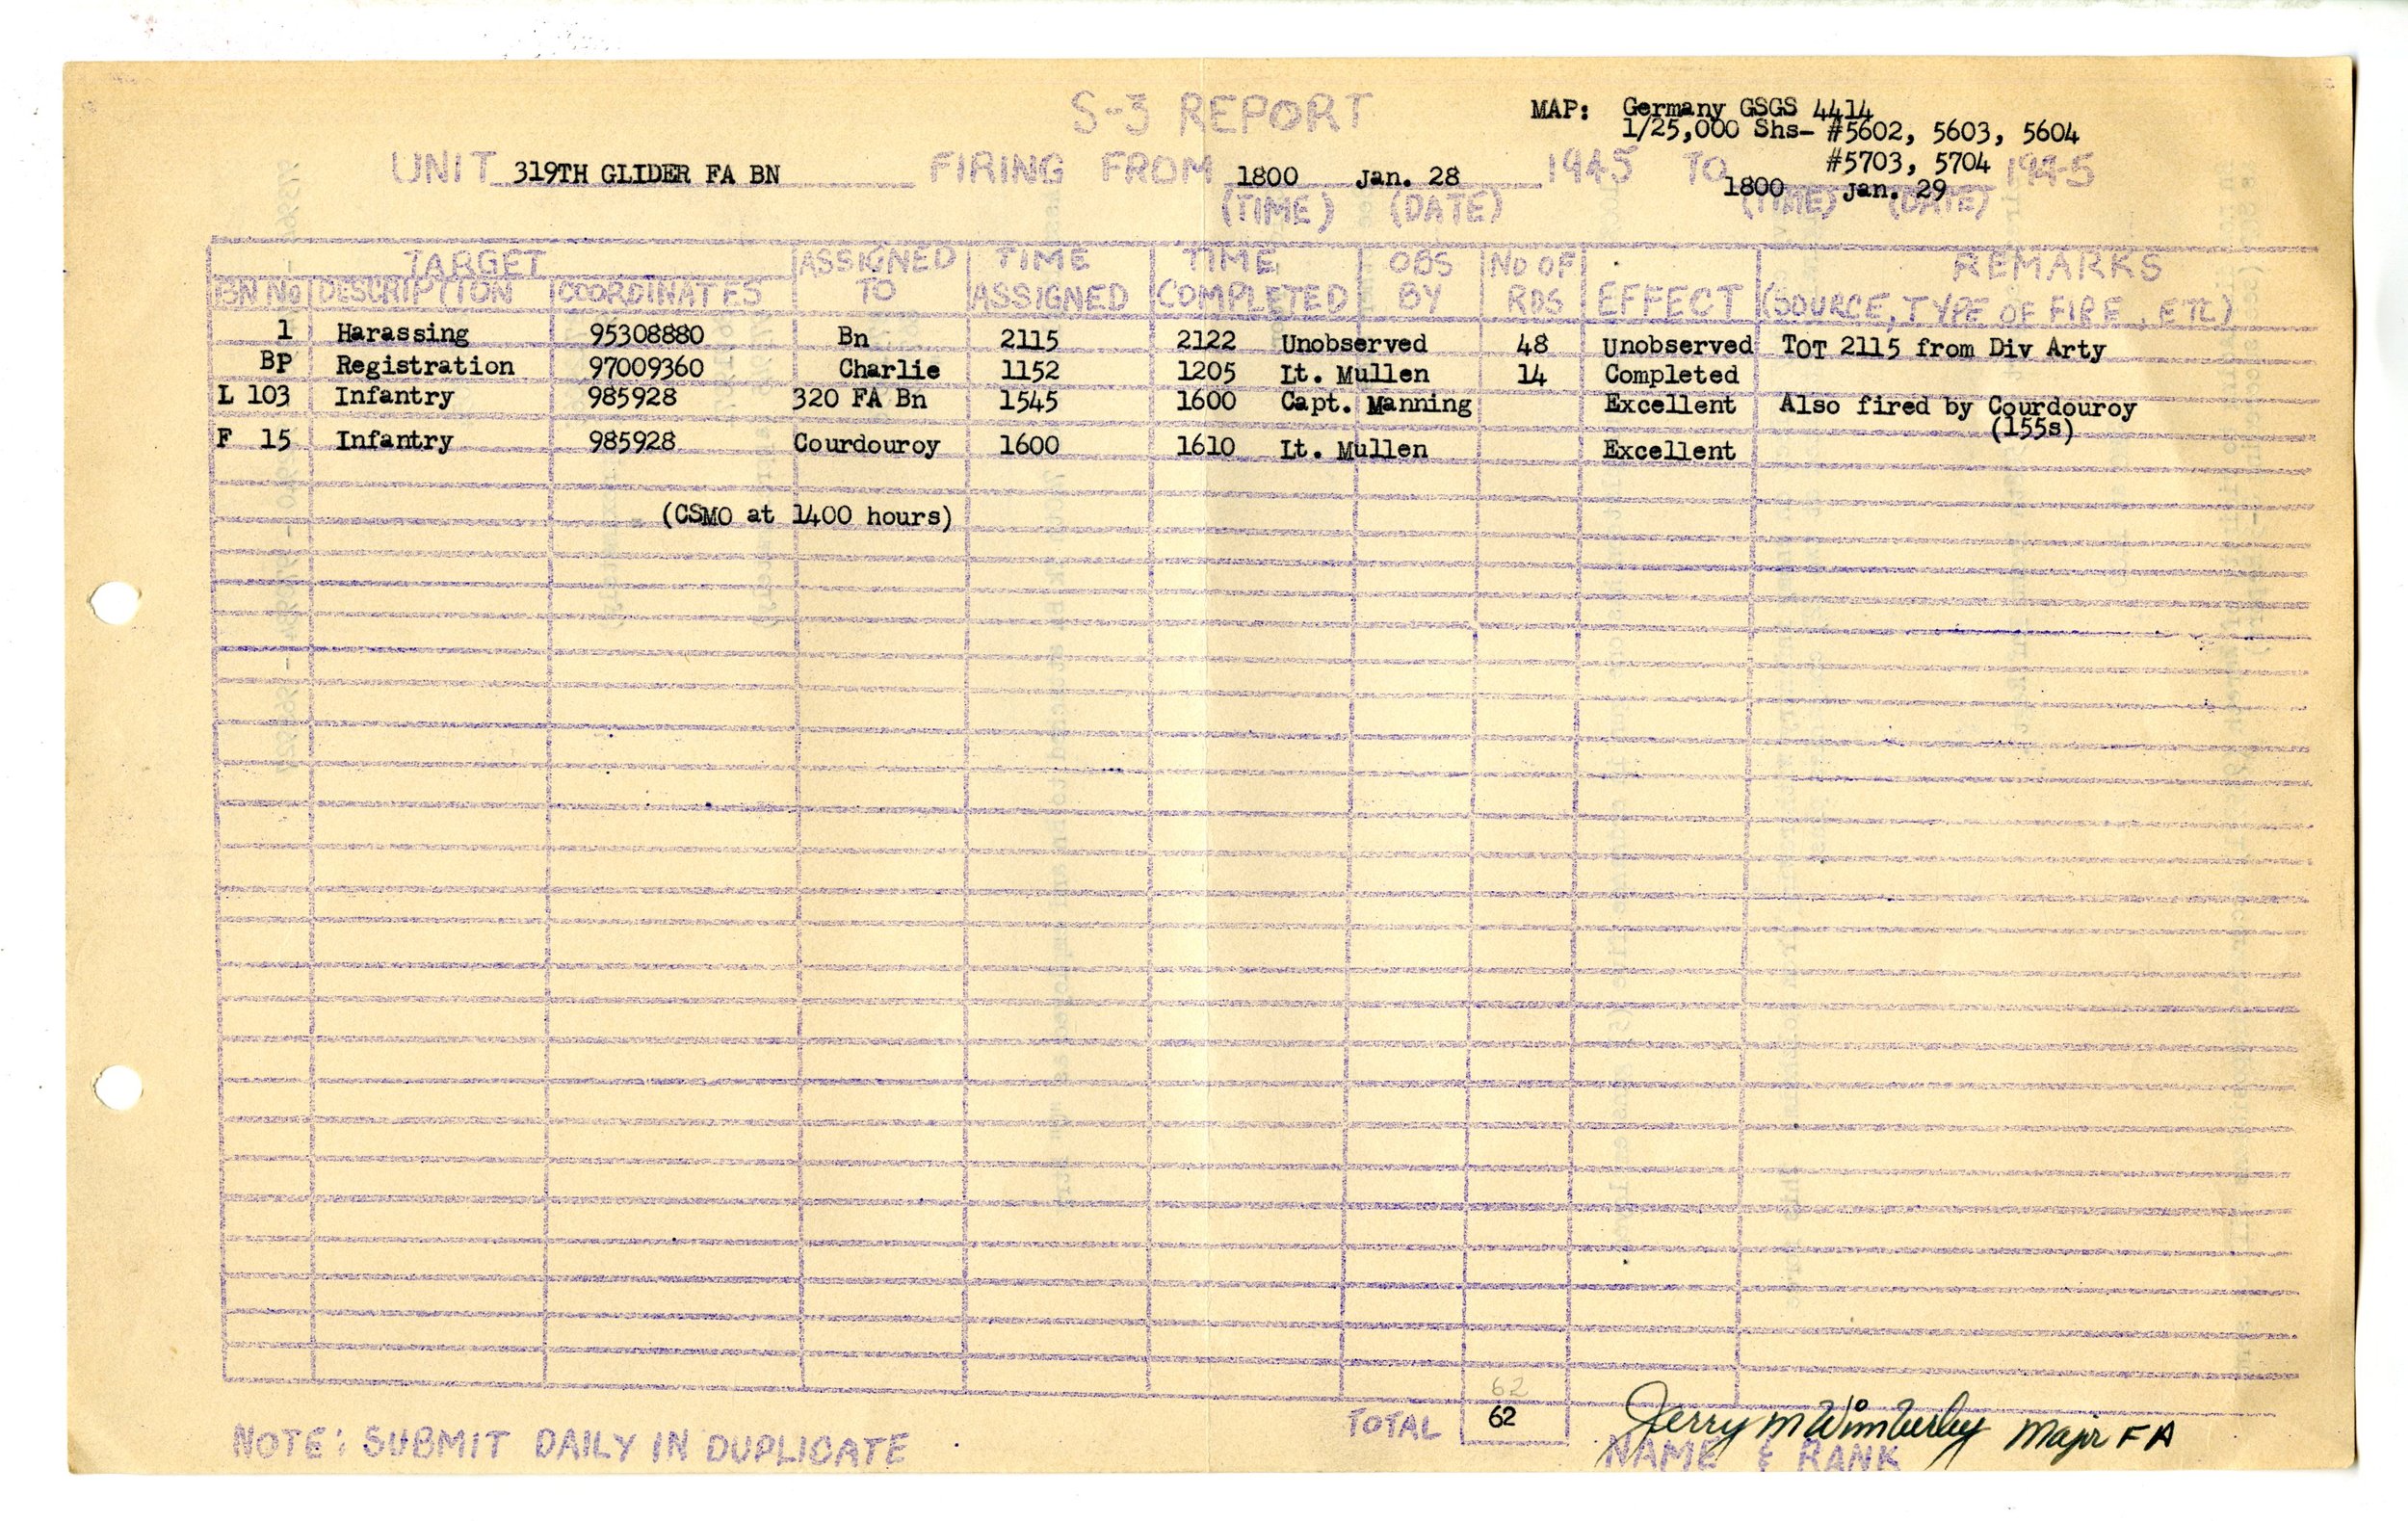 S-3 REPORT
MAP: Germany GSGS 4414
1/25,000 Shs- #5602, 5603, 5604
#5703, 5704
UNIT 319TH GLIDER FA BN FIRING FROM 1800 Jan. 28 1945 TO 1800 Jan. 29 1945
(TIME) (DATE) (TIME) (DATE)
TARGET ASSIGNED TIME TIME OBS NO OF REMARKS
BN NO DESCRIPTION COORDINATES TO ASSIGNED COMPLETED BY RDS EFFECT (SOURCE, TYPE OF FIRE, ETC)
1 Harassing 95308880 Bn 2115 2122 Unobserved 48 Unobserved TOT 2115 from Div Arty
BP Registration 97009360 Charlie 1152 1205 Lt. Mullen 14 Completed
L 103 Infantry 985928 320 FA Bn 1545 1600 Capt. Manning Excellent Also fired by Courdouroy
(155s)
F 15 Infantry 985928 Courdouroy 1600 1610 Lt. Mullen Excellent
(CSMO at 1400 hours)
62
TOTAL 62
Jerry M Wimberley Major FA
NOTE: SUBMIT DAILY IN DUPLICATE NAME & RANK